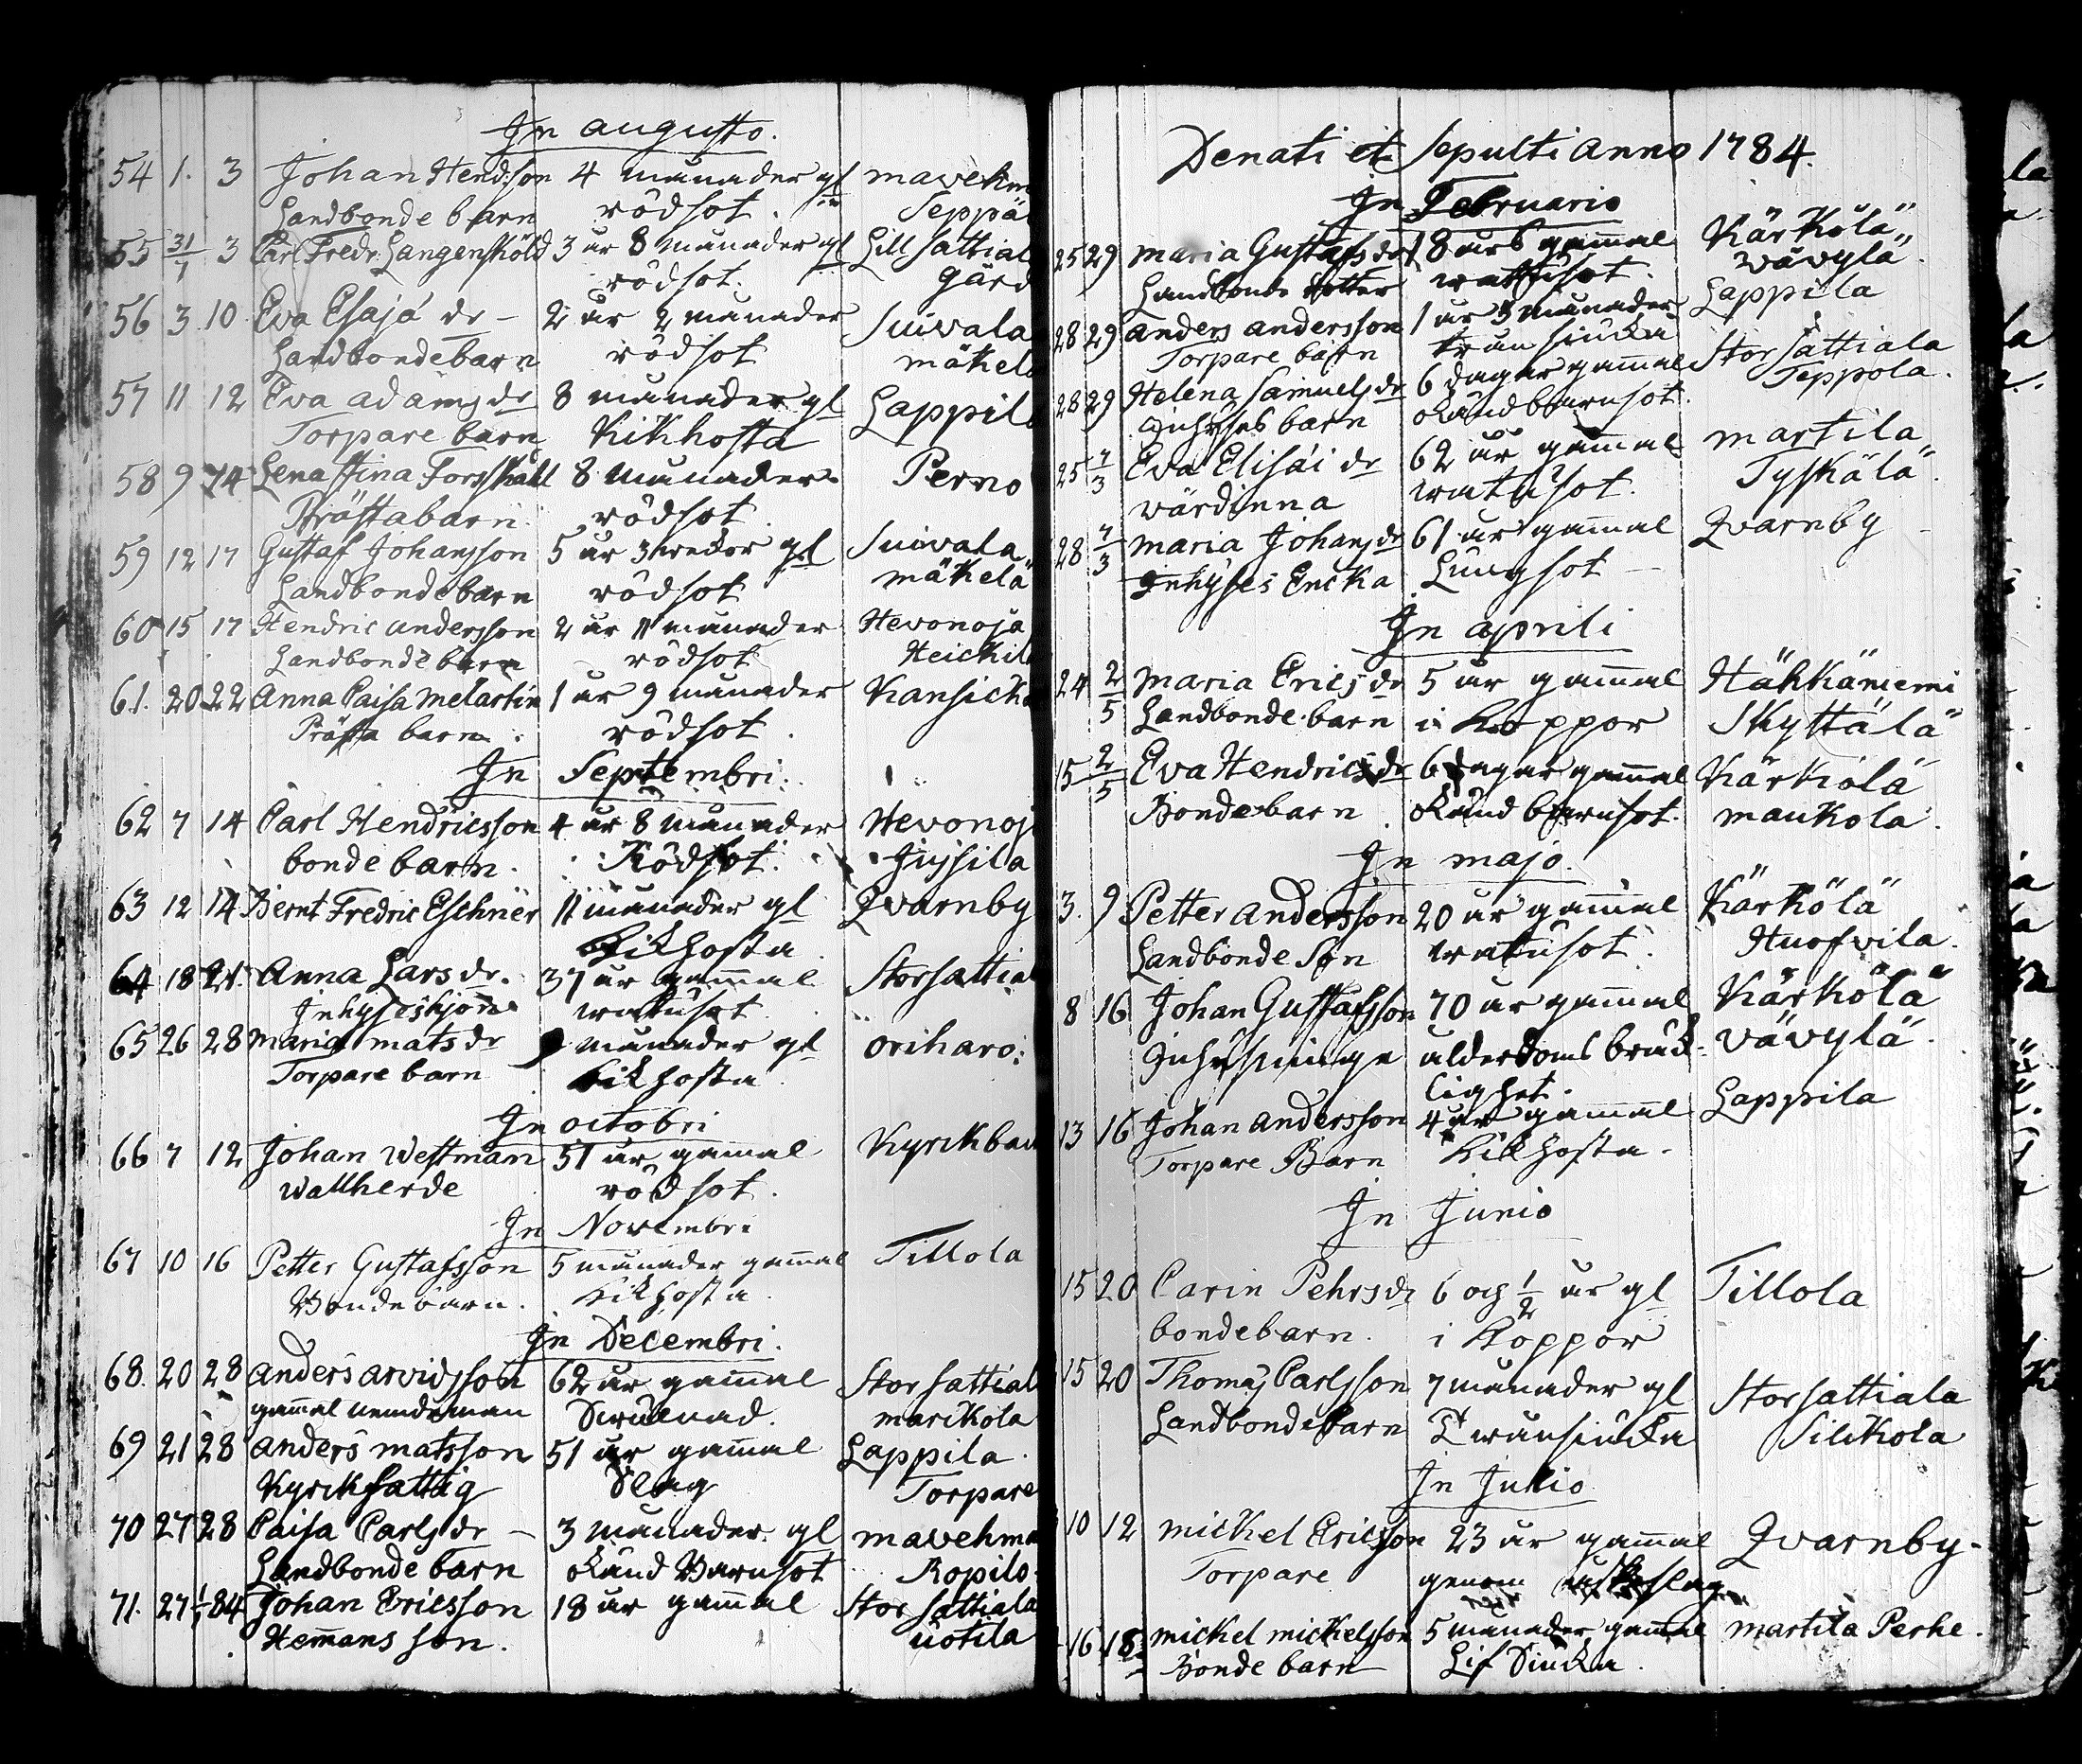 In augusto.
54 1. 3 Johan Hend:son 4 månader gl mavehm
Landbonde barn rödsot. Seppäl
55 31/7 3 Carl Fredr: Langensköld 3 år 8 månader gl Lill Sattial
rödsot. gård
56 3 10 Eva Esajæ dr – 2 år 2 månader Suivala
Landbondebarn rödsot mäkelä
57 11 12 Eva adamsdr 8 månader gl Lappila
Torpare barn Kikhosta
58 9 14 Lena Stina Forsskåhl 8 månader Perno
Prästabarn rödsot
59 12 17 Gustaf Johansson 5 år 3 wekor gl Suivala
Landbondebarn rödsot mäkelä
60 15 17 Hendric andersson 2 år 11 månader Hevonoja
Landbonde barn rödsot Heickil
61. 20 22 Anna Caisa metartin 1 år 9 månader Kansicka
Prästa barn. rödsot.
In Septembri.
62 7 14 Carl Hendricsson 4 år 8 månader Hevonoj
bonde barn. Rödsot. Jussila
63 12 14 Bernt Fredric Eschner 11 månader gl Qvarnby
Kikhosta
64 18 21. Anna Larsdr. 37 år gammal Storsattial
Inhyseshjon watusot.
65 26 28 Maria matsdr 9 månader gl öriharo.
Torpare barn Kikhosta
In octobri
66 7 12 Johan Westman 51 år gamal Kyrckbac
Wallherde rödsot.
In Novembri
67 10 16 Petter Gustafsson 5 månader gammal Tillola
Bondebarn. Kikhosta.
In Decembri.
68. 20 28 anders arvidsson 62 år gammal Stor Sattial
gammal nemdeman Swulnad. marckola
69 21 28 anders matsson 51 år gammal Lappila.
Kyrckfattig Slag Torpare
70 27 28 Caisa Carlsdr – 3 månader gl mavehma
Landbonde barn okänd Barnsot Ropilo.
71. 27 1/1 84 Johan Ericsson 18 år gammal Stor Sattiala
Hemmans son. uotila
Denati et Sepulti anno 1784.
In Februario
25 29 maria Gustafsdr 18 års gammal Kärkölä
Landbonde dotter wattusot. wävylä.
28 29 anders andersson 1 år 3 månader Lappila
Torpare barn tränsiuka
28 29 Helena Samuelsdr 6 dagar gammal Stor Sattiala
Inhyses barn okänd barnsot. Teppola.
25 7/3 Eva Elisæi dr 62 år gammal martila
wärdinna watusot. Tyskälä.
28 7/3 maria Johansdr 61 år gammal Qvarnby –
Inhyses Encka Lungsot –
In aprili
24 2/5 maria Ericsdr 5 år gammal Hähkäniemi
Landbonde barn i Koppor Skyttälä
15 2/5 Eva Hendricsdr 6 dagar gammal Kärkölä
Bondebarn. okänd barnsot. maukola.
In majo.
3. 9 Petter andersson 20 år gammal Kärkölä
Landbonde Son watusot. Huofvila.
8 16 Johan Gustafsson 70 år gammal Kärkölä
Inhysinge ålderdoms bräck- vävylä.
lighet.
13 16 Johan andersson 4 år gammal Lappila
Torpare Barn Kikhosta.
In Junio
15 20 Carin Pehrsdr 6 och 1/2 år gl Tillola
bondebarn. i Koppor
15 20 Thomas Carlsson 7 månader gl Storsattiala
Landbondebarn Twänsiucka Silckola
In Julio
10 12 mickel Ericsson 23 år gammal Qvarnby.
Torpare genom åskslag
16 18 mickel mickelsson 5 månader gammal martila Perhe.
Bonde barn Lif Siucka.